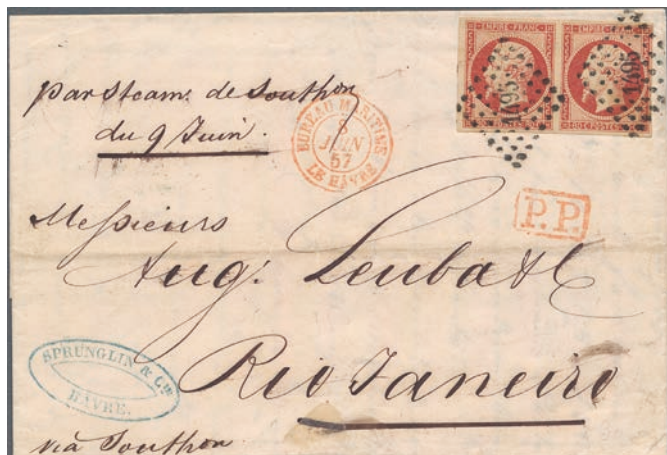 EMPIRE FRANC
EMPIRE FRANC
80 C POSTES
1495
1495
par Steam. de Southon
du 9 Juin.
BUREAU MARITIME
8
JUIN
57
LE HAVRE
P.P.
Messieurs
Aug. Leuba & C
Rio Janeiro
SPRUNGLIN & Cie
HAVRE.
via Southon